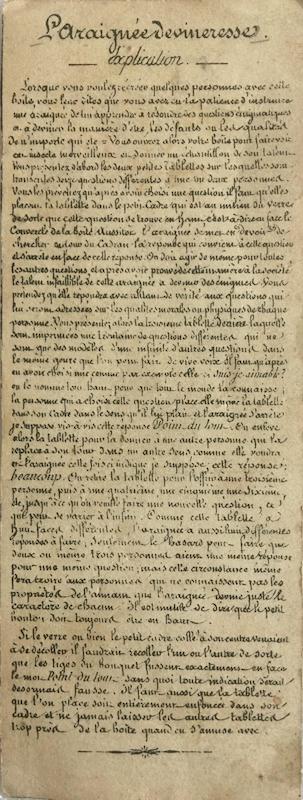 L'Araignée devineresse.
Explication.
Lorsque vous voulez récréer quelques personnes avec cette
boîte, vous leur dites que vous avez eu la patience d'instruire
une araignée de lui apprendre à résoudre des questions énigmatiques
et à deviner la manière d'être les défauts ou les qualités
de n'importe qui etc. Vous ouvrez alors votre boîte pour faire voir
cet insecte merveilleux et donner un échantillon de son talent.
Vous présentez d'abord les deux petites tablettes sur lesquelles sont
transcrites seize questions différentes à une ou deux personnes.
Vous les prévenez qu'après avoir choisi une question il faut qu'elles
placent la tablette dans le petit Cadre qui est au milieu du verre
de sorte que cette question se trouve en haut, c'est-à-dire en face le
Couvercle de la boîte. Aussitôt l'araignée se met en devoir de
chercher autour du Cadran la réponse qui convient à cette question
et s'arrête en face de cette réponse. On doit agir de même pour toutes
les autres questions et après avoir prouvé de cette manière à la société
le talent infaillible de cette araignée à deviner des énigmes. Vous
prétendez qu'elle répondra avec autant de vérité aux questions qui
lui seront adressées sur les qualités morales ou physiques de chaque
personne. Vous présentez alors la troisième tablette derrière laquelle
sont imprimées une centaine de questions différentes qui ne
sont que des modèles d'une infinité d'autres questions dans
le même genre que l'on peut faire de vive voix. Il faut qu'après
en avoir choisi une comme par exemple celle-ci Suis-je aimable?
on la nomme tout haut pour que tout le monde la connaisse;
la personne qui a choisi cette question place elle même la tablette
dans son cadre dans le sens qu'il lui plaît et l'araignée s'arrête
je suppose vis-à-vis cette réponse Point du tout. On enlève
alors la tablette pour la donner à une autre personne qui la
replace à son tour dans un autre sens comme elle voudra
et l'araignée cette fois-ci indique je suppose, cette réponse:
beaucoup. On retire la tablette pour l'offrir à une troisième
personne, puis à une quatrième une cinquième une sixième
etc, jusqu'à ce qu'on veuille faire une nouvelle question, ce
que peut se varier à l'infini. Comme cette tablette a
huit faces différentes l'araignée a aussi huit différentes
réponses à faire, seulement le hasard peut faire que
deux ou même trois personnes aient une même réponse
pour une même question; mais cette circonstance même
fera croire aux personnes qui ne connaissent pas les
propriétés de l'aimant que l'araignée devine juste le
caractère de chacun. Il est inutile de dire que le petit
bouton doit toujours être en haut.
Si le verre ou bien le petit cadre collé à son centre venaient
à se décoller il faudrait recoller l'un ou l'autre de sorte
que les tiges du bouquet fussent exactement en face
le mot Point du tout sans quoi toute indication serait
désormais fausse. Il faut aussi que la tablette
que l'on place soit entièrement enfoncée dans son
cadre et ne jamais laisser les autres tablettes
trop près de la boîte quand on s'amuse avec